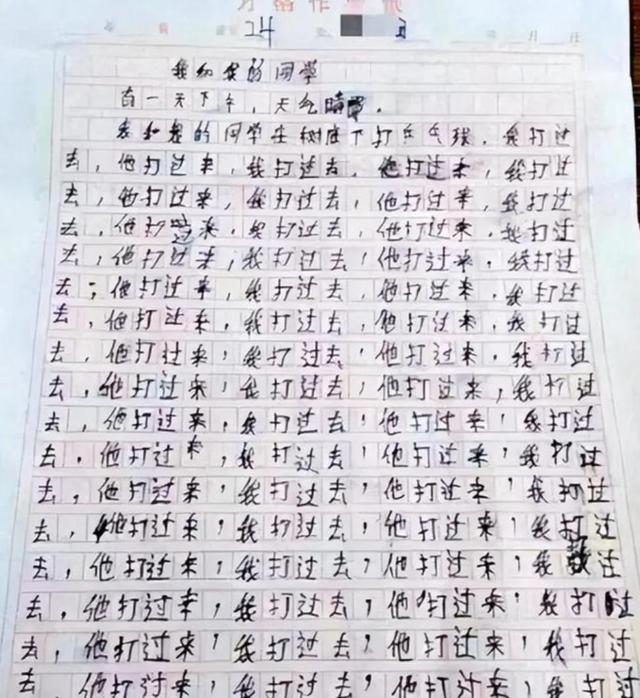 24
我和我的同学
有一天下午，天气晴。
我和我的同学在树底下打乒乓球，我打过
去，他打过来，我打过去，他打过来，我打过
去，他打过来，我打过去，他打过来，我打过
去，他打过来，我打过去，他打过来，我打过
去，他打过来，我打过去，他打过来，我打过
去，他打过来，我打过去，他打过来，我打过
去，他打过来，我打过去，他打过来，我打过
去，他打过来，我打过去，他打过来，我打过
去，他打过来，我打过去，他打过来，我打过
去，他打过来，我打过去，他打过来，我打过
去，他打过来，我打过去，他打过来，我打过
去，他打过来，我打过去，他打过来，我打过
去，他打过来，我打过去，他打过来，我打过
去，他打过来，我打过去，他打过来，我过
去，他打过来，我打过去，他打过来，我打过
去，他打过来，我打过去，他打过来，我打过
去，他打过来，我打过去，他打过来，我打过